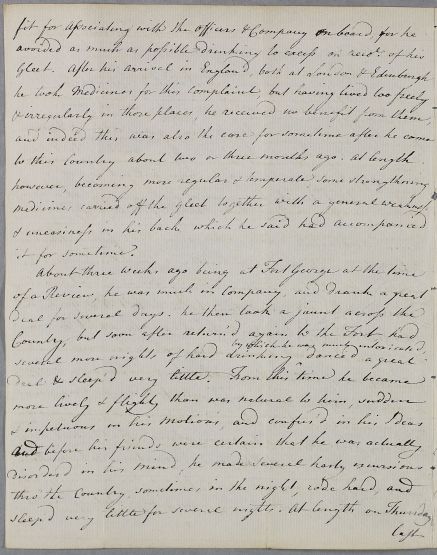 fit for associating with the officers & Company on board, for he
avoided as much as possible drinking to excess on acct. of his
Gleet. After his arrival in England, both at London & Edinburgh
he took Medicines for this complaint, but having lived too freely
& irregularly in those places, he received no benefit from them,
and indeed this was also the case for sometime after he came
to this Country about two or three months ago. at length
however, becoming more regular & temperate some strengthening
medicines carried off the gleet together with a general weakness
& uneasiness in his back which he said had accompanied
it for sometime.
About three weeks ago being at Fort George at the time
of a Review, he was much in company, and drank a great
deal for several days. he then took a jaunt across the
Country, but soon after return'd again to the Fort had
several more nights of hard drinking by which he was much intoxicated danced a great
deal & sleep'd very little. From this time he became
more lively & flighty than was natural to him, sudden
& impetuous in his motions, and confus'd in his Ideas
and before his friends were certain that he was actually
disorder'd in his mind, he made several hasty excursions
thro the Country, sometimes in the night, rode hard, and
sleep'd very little for several nights. At length on Thursday
last